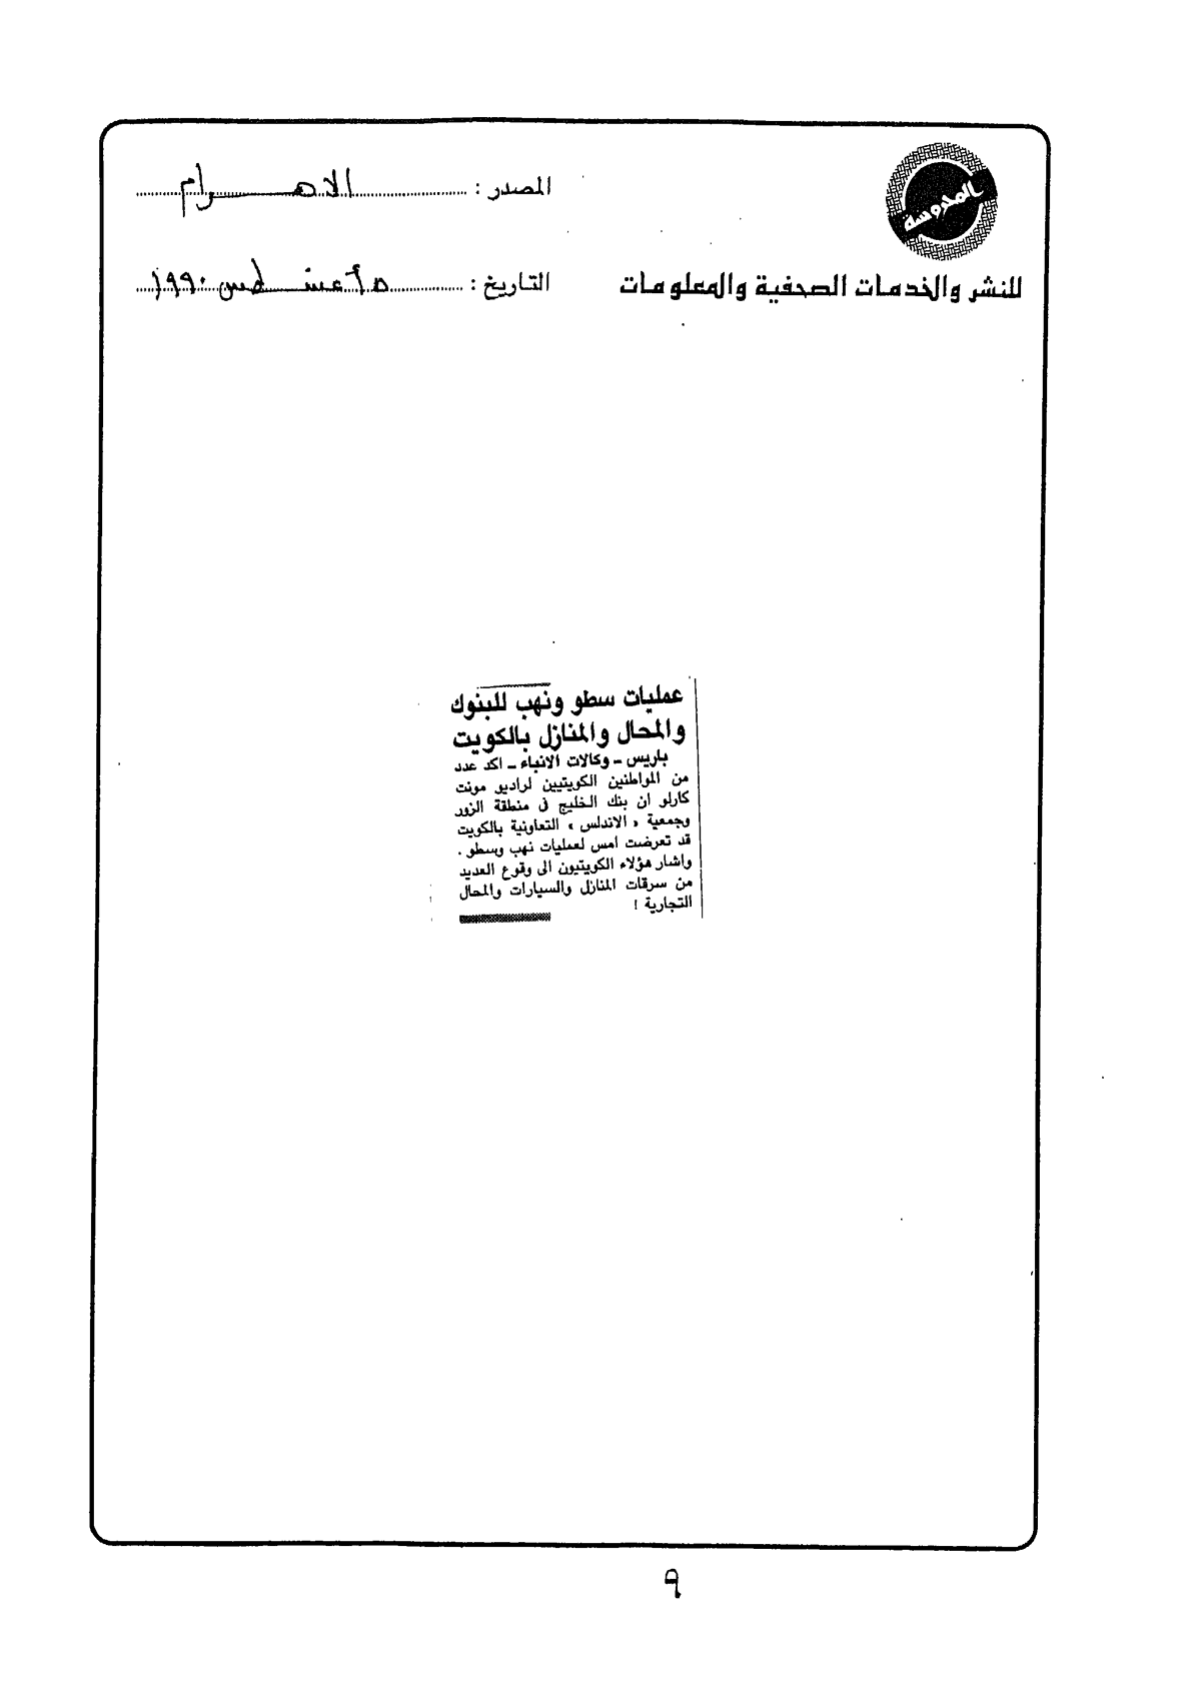 المحروسة
للنشر والخدمات الصحفية والمعلومات
المصدر : الاهرام
التاريخ : ٥ أغسطس ١٩٩٠
عمليات سطو ونهب للبنوك
والمحال والمنازل بالكويت
باريس ـ وكالات الانباء ـ اكد عدد
من المواطنين الكويتيين لراديو مونت
كارلو ان بنك الخليج فى منطقة الزور
وجمعية « الاندلس » التعاونية بالكويت
قد تعرضت امس لعمليات نهب وسطو .
واشار هؤلاء الكويتيون الى وقوع العديد
من سرقات المنازل والسيارات والمحال
التجارية !
٩